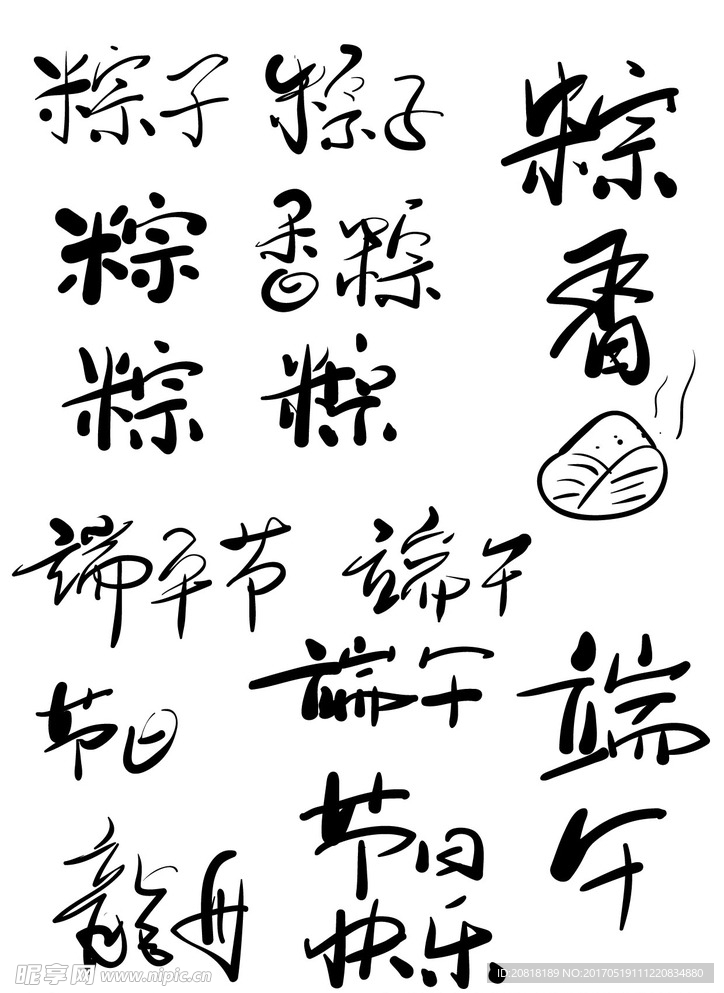 粽子
粽子
粽
香
粽
香粽
粽
粽
端午节
端午
端午
端
午
节日
节日
快乐
龍舟
昵享网 www.nipic.cn
ID:20818189 NO:20170519111220834880